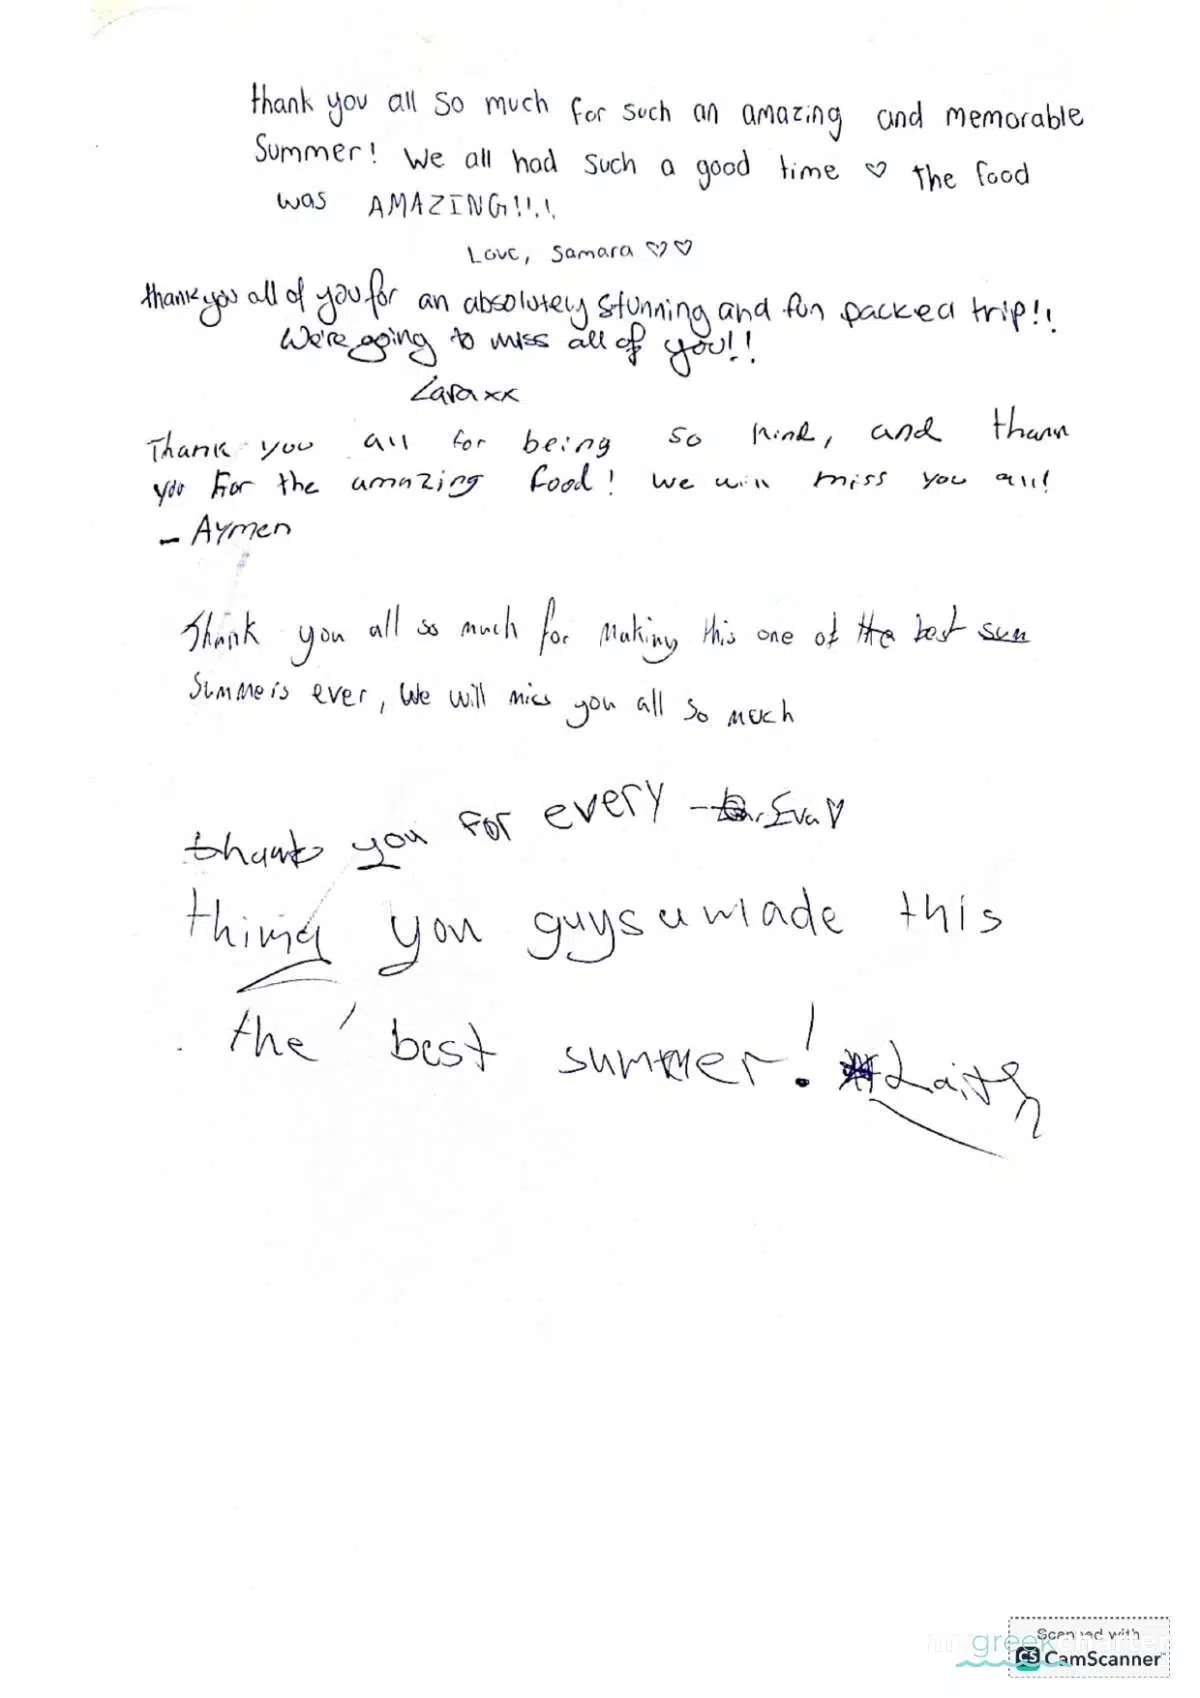 thank you all so much for such an amazing and memorable
Summer! We all had such a good time ♡ the food
was AMAZING!!!!
Love, Samara ♡♡
thank you all of you for an absolutely stunning and fun packed trip!!
We're going to miss all of you!!
Lara xx
Thank you all for being so kind, and thank
you for the amazing food! We will miss you all!
- Aymen
Thank you all so much for making this one of the best sum
Summers ever, We will miss you all so much
- Eva ♡
thank you for every
thing you guys u made this
the best summer! Laith
Scanned with
my greek charter
CS CamScanner